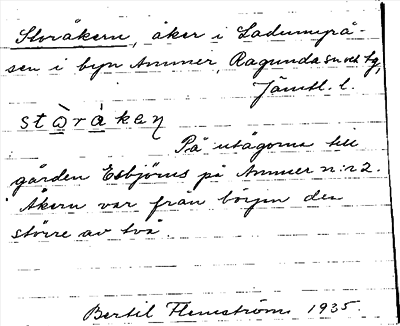 Storåkern, åker i Ladumyrå-
sen i byn Ammer, Ragunda sn och tg,
Jämtl. l.
stò̱rà̱keɳ
På utägorna till
gården Esbjörns på Ammer n:r 2.
Åkern var från början den
större av två.
Bertil Flemström 1935.